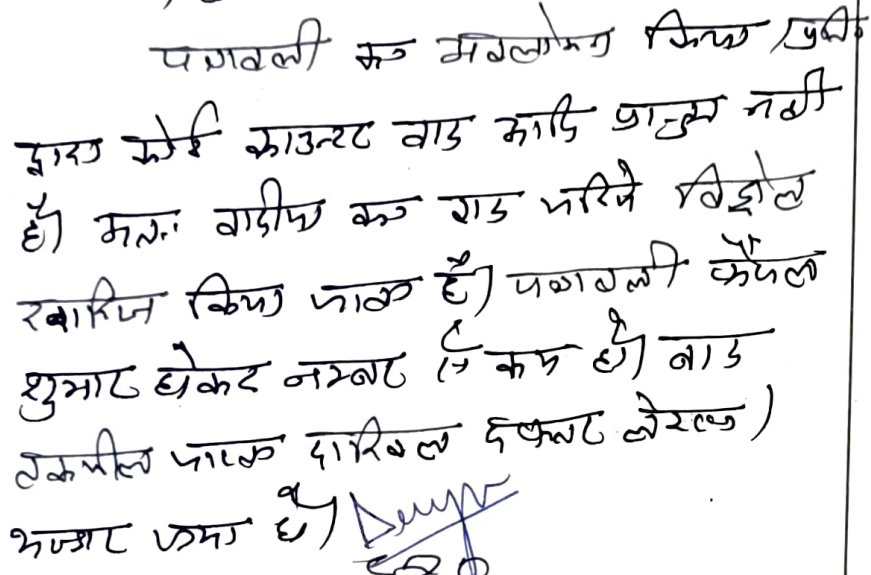 पत्रावली का अवलोकन किया प्रति
द्वारा कोई काउन्टर वाद आदि प्रस्तुत नहीं
है। अतः वादीया का वाद जरिये विड्रोल
खारिज किया जाता है। पत्रावली फैसल
शुमार होकर नम्बर से कम हो। बाद
तकमील जाब्ता दाखिल दफ्तर
है।